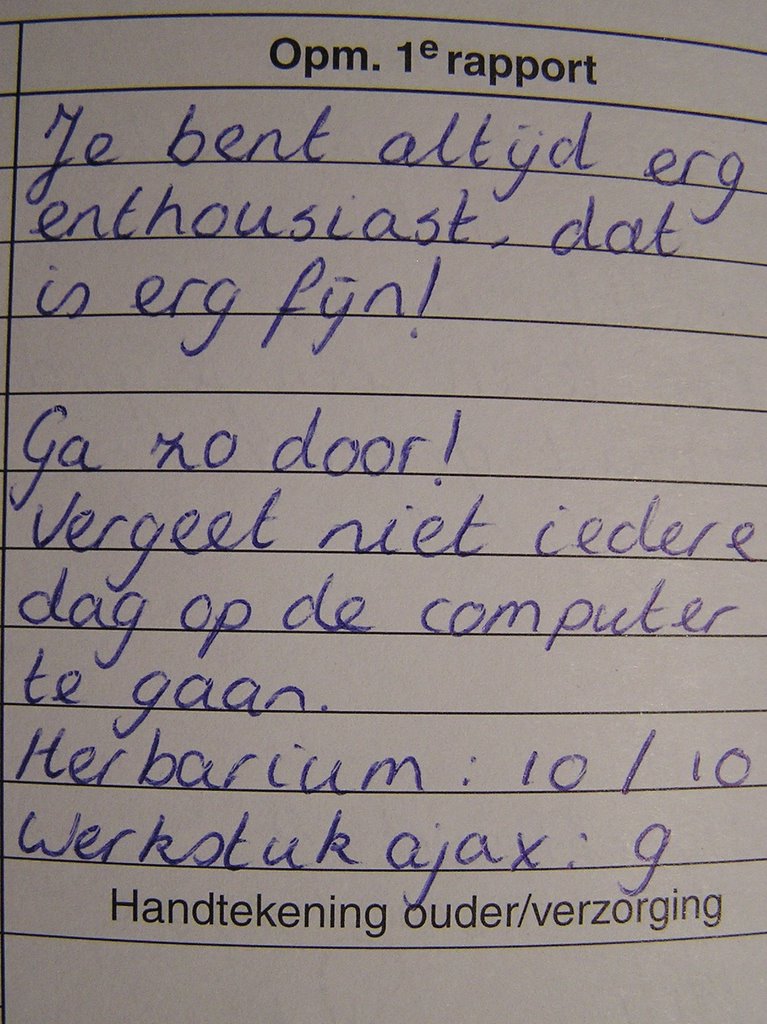 Opm. 1e rapport
Je bent altijd erg
enthousiast, dat
is erg fijn!
Ga zo door!
Vergeet niet iedere
dag op de computer
te gaan.
Herbarium : 10 / 10
Werkstuk ajax : g
Handtekening ouder/verzorging